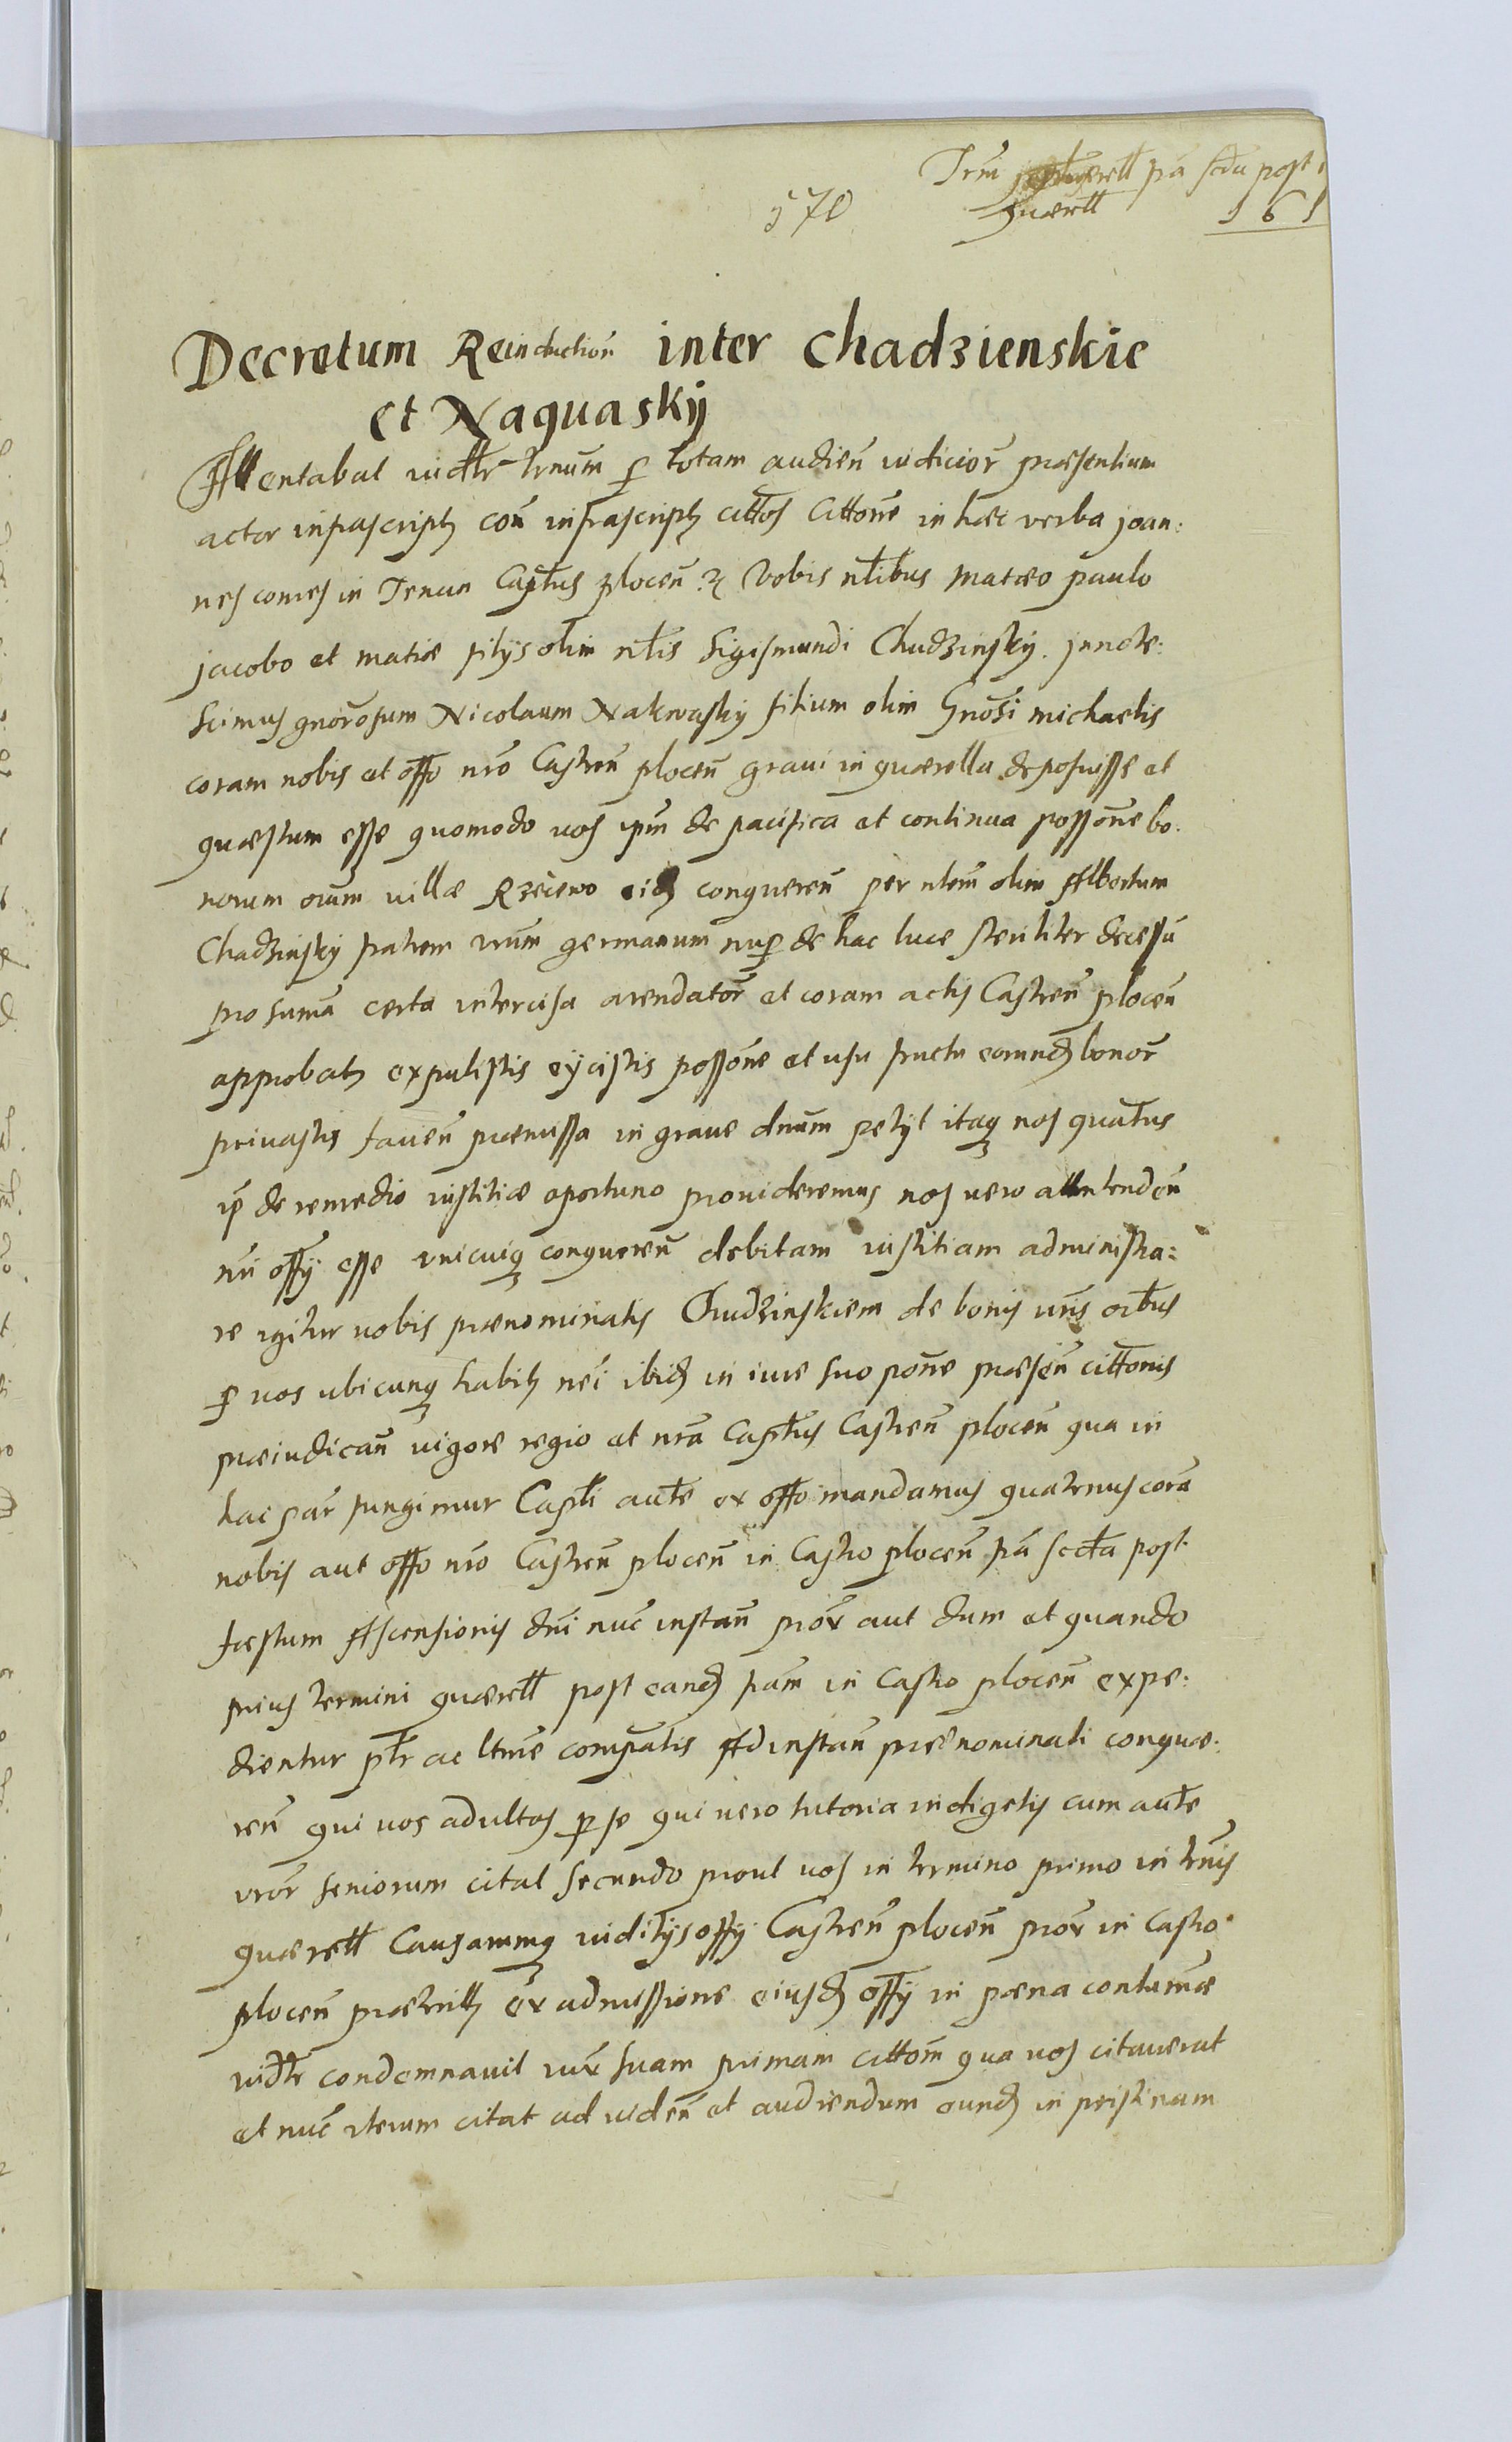 Trm̃ pã fcđa post
570 quærell 161
Decretum Reinductioñ inter Chadzienskie
et Naquaskÿ
Attentabat iudtr trnum̃ p totam audieñ iudicior̃ præsentium
actor infrascriptz coñ infrascriptz cittos Cittoñe in hæc verba joan:
nes comes in Tencin Capt̃us plocen̄ ꝛ Vobis nłibus Matæo paulo
jacobo et matiæ filÿs olim nłis Sigismundi Chudzinskÿ. jnnote:
scimus gnõrosum Nicolaum Nakwaskÿ filium olim Gnõsi michaelis
coram nobis et offo nrõ Castreñ ploceñ graui in quærella deposuisse et
quæstum esse quomodo uos ipm̃ de pacifica et continua possoñe bo:
norum orũm uillæ Rzecewo eidz conquereñ per nłem olim Albertum
Chadzinskÿ fratrem urũm germanum nup de hac luce steriliter decessũ
pro sum̃a certa intercisa arendator̃ et coram actis Castreñ ploceñ
approbatz expulistis eÿcistis possoñe et usu fructu eorundz bonor̃
priuastis faueñ præmissa in graue dnũm petÿt itaq̨ nos quat̃us
ip̃ de remedio iustitiæ oportuno prouideremus nos uero attendeñ
nri offÿ esse unicuiq̨ conquereñ debitam iustitiam administra:
re igitur uobis prænominatis Chudzinskiem de bonis urĩs orĩbus
p uos ubicunq̨ habitz nei ibidz in iure suo poñe præseñ cittonis
præiudicañ uigore regio et nrã Capt̃us Castreñ ploceñ qua in
hac par̃ fungimur Capłi aut̃e ex offo mandamus quatenus corã
nobis aut offo nrõ Castreñ ploceñ in Castro ploceñ fiã scđa post
fæstum Ascensionis dni nuc̃ instañ prox̃ aut dum et quando
prius termini quærell post eandz fiam in Castro ploceñ expe:
dientur ptr ac ltm̃e compatis Ad instañ prænominati conquæ:
reñ qui uos adultos p se qui uero tutoria indigetis cum aut̃e
uror̃ seniorum citat secundo prout uos in termino primo in trnis
quærell Causarumq̨ iuditÿs offÿ Castreñ ploceñ prox̃ in Castro
ploceñ præteritz ex admissione eiusdz offÿ in pæna contumã
iudtr condemnauit iux̃ suam primam cittom̃ qua uos citauerat
et nuc̃ iterum citat ad uideñ et audiendum eundz in pristinam